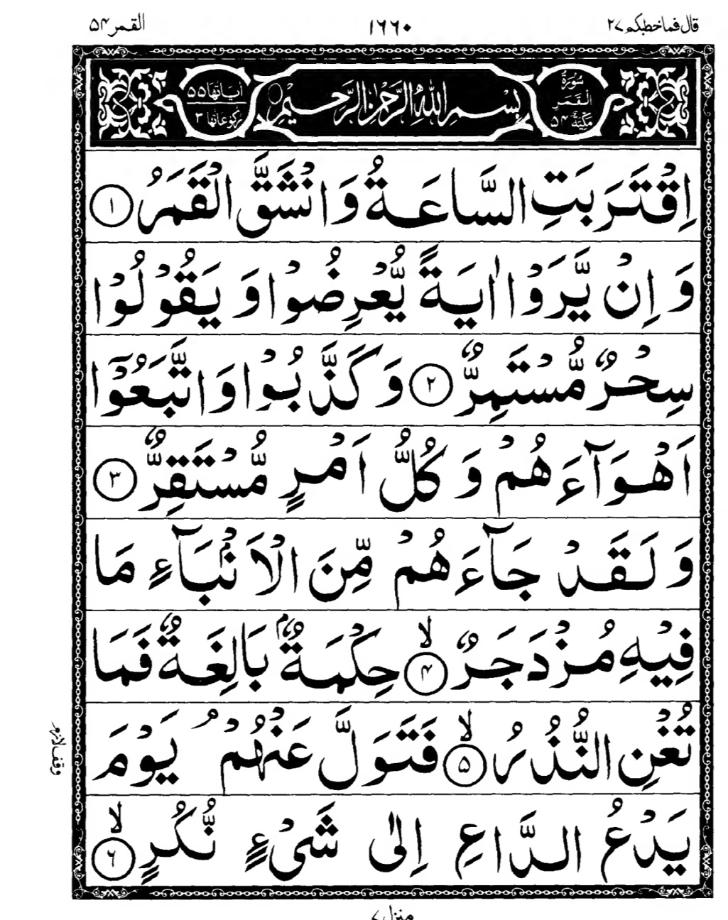 قال فما خطبكم ٢٧
١٦٦٠
القمر ٥٤
سُوْرَةُ الْقَمَرِ مَكِّيَّةٌ ٥٤
بِسْمِ اللّٰهِ الرَّحْمٰنِ الرَّحِيْمِ
اٰيَاتُهَا ٥٥
رُكُوْعَاتُهَا ٣
اِقْتَرَبَتِ السَّاعَةُ وَانْشَقَّ الْقَمَرُ ١
وَ اِنْ يَّرَوْا اٰيَةً يُّعْرِضُوْا وَ يَقُوْلُوْا
سِحْرٌ مُّسْتَمِرٌّ ٢ وَ كَذَّبُوْا وَاتَّبَعُوْٓا
اَهْوَآءَهُمْ وَ كُلُّ اَمْرٍ مُّسْتَقِرٌّ ٣
وَ لَقَدْ جَآءَهُمْ مِّنَ الْاَنْۢبَآءِ مَا
فِيْهِ مُزْدَجَرٌ ۙ ٤ حِكْمَةٌۢ بَالِغَةٌ فَمَا
تُغْنِ النُّذُرُ ۙ ٥ فَتَوَلَّ عَنْهُمْ ۘ يَوْمَ
يَدْعُ الدَّاعِ اِلٰى شَىْءٍ نُّكُرٍ ۙ ٦
وقف لازم
منزل ٧